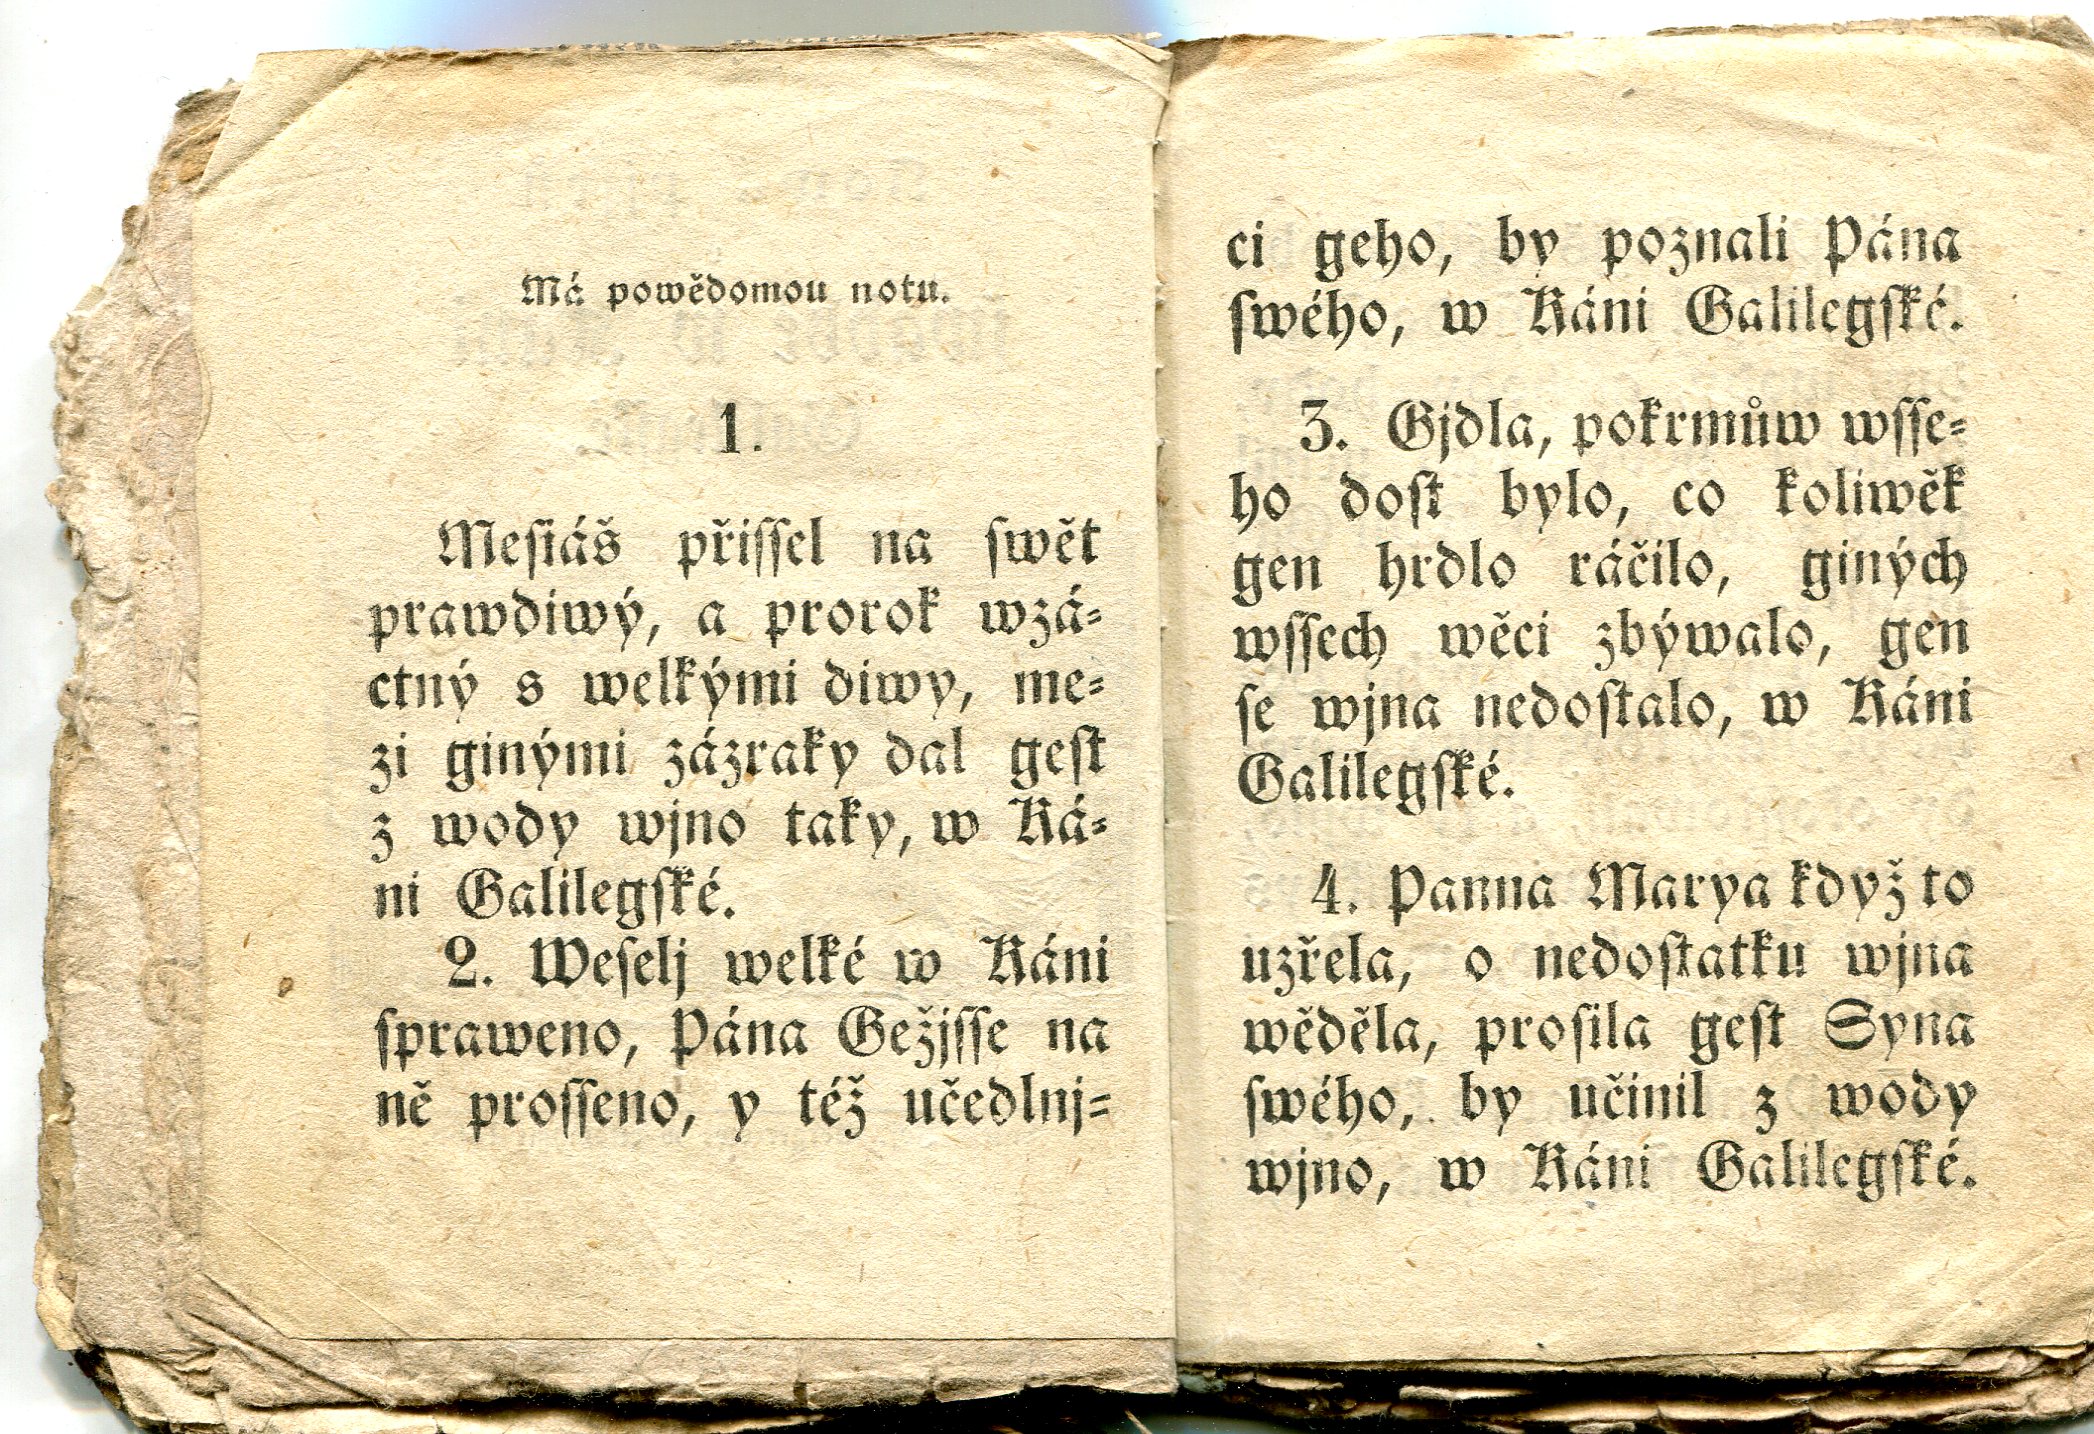 Má powědomou notu.
1.
Mesiáš přissel na swět
prawdiwý, a prorok wzá-
ctný s welkými diwy, me-
zi ginými zázraky dal gest
z wody wjno taky, w Ká-
ni Galilegské.
2. Weselj welké w Káni
spraweno, Pána Gežjsse na
ně prosseno, y též učedlnj-
ci geho, by poznali Pána
swého, w Káni Galilegské.
3. Gjdla, pokrmůw wsse-
ho dost bylo, co koliwěk
gen hrdlo ráčilo, giných
wssech wěci zbýwalo, gen
se wjna nedostalo, w Káni
Galilegské.
4. Panna Marya když to
uzřela, o nedostatku wjna
wěděla, prosila gest Syna
swého, by učinil z wody
wjno, w Káni Galilegské.